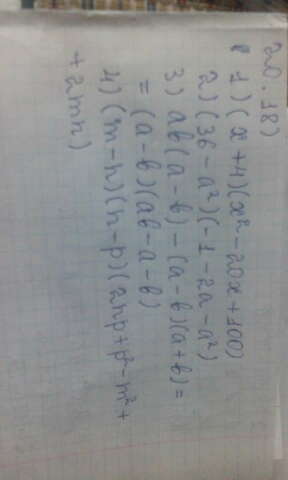 20.18)
1) (x+4)(x²-20x+100)
2) (36-a²)(-1-2a-a²)
3) ab(a-b)-(a-b)(a+b)=
=(a-b)(ab-a-b)
4) (m-n)(n-p)(2np+p²-m²+
+2mn)